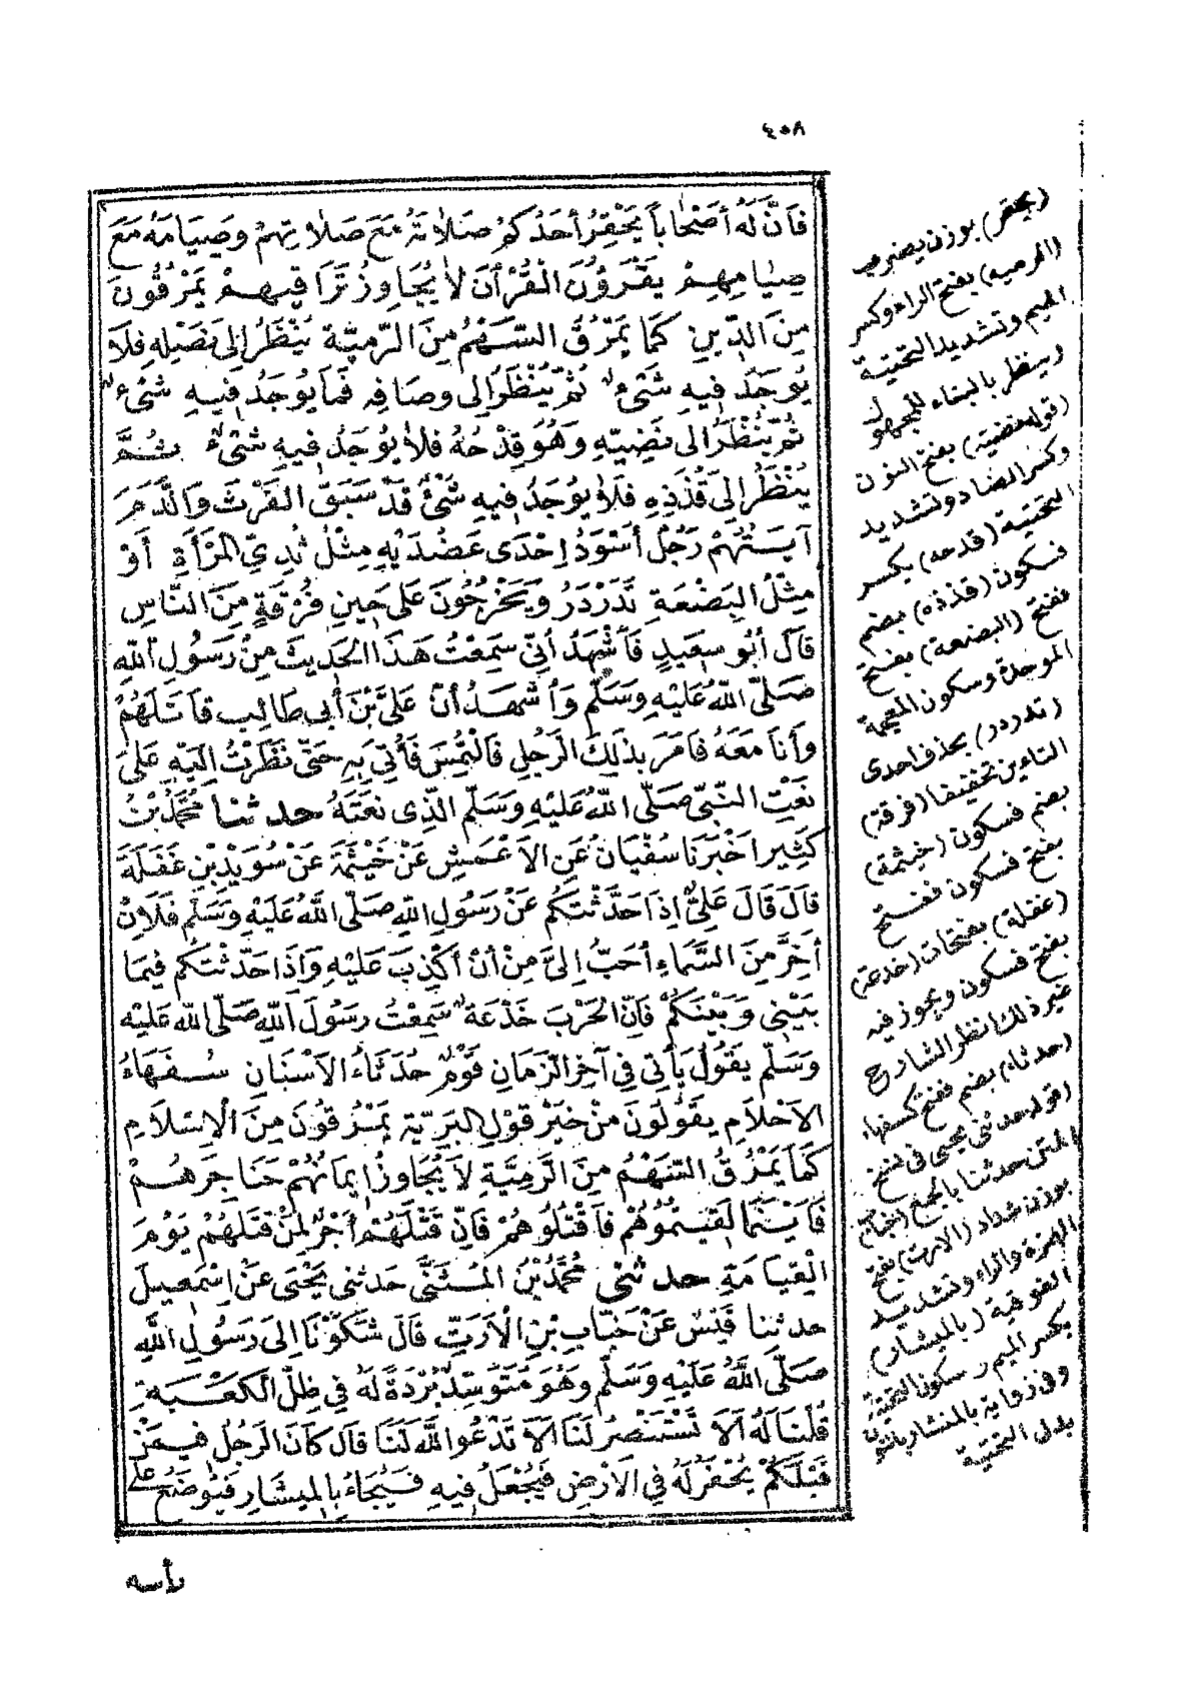 ٤٥٨
فَاِنَّ لَهُ أَصْحَابًا يَحْقِرُ أَحَدُكُمْ صَلَاتَهُ مَعَ صَلَاتِهِمْ وَصِيَامَهُ مَعَ
صِيَامِهِمْ يَقْرَؤُنَ الْقُرْآنَ لَا يُجَاوِزُ تَرَاقِيهِمْ يَمْرُقُونَ
مِنَ الدِّينِ كَمَا يَمْرُقُ السَّهْمُ مِنَ الرَّمِيَّةِ يُنْظَرُ إِلَى نَصْلِهِ فَلَا
يُوجَدُ فِيهِ شَىْءٌ ثُمَّ يُنْظَرُ إِلَى رِصَافِهِ فَمَا يُوجَدُ فِيهِ شَىْءٌ
ثُمَّ يُنْظَرُ إِلَى نَضِيِّهِ وَهُوَ قِدْحُهُ فَلَا يُوجَدُ فِيهِ شَىْءٌ ثُمَّ
يُنْظَرُ إِلَى قُذَذِهِ فَلَا يُوجَدُ فِيهِ شَىْءٌ قَدْ سَبَقَ الْفَرْثَ وَالدَّمَ
آيَتُهُمْ رَجُلٌ أَسْوَدُ إِحْدَى عَضُدَيْهِ مِثْلُ ثَدِيِ الْمَرْأَةِ أَوْ
مِثْلُ الْبَضْعَةِ تَدَرْدَرُ وَيَخْرُجُونَ عَلَى حِينِ فُرْقَةٍ مِنَ النَّاسِ
قَالَ أَبُو سَعِيدٍ فَأَشْهَدُ أَنِّى سَمِعْتُ هَذَا الْحَدِيثَ مِنْ رَسُولِ اللّٰهِ
صَلَّى اللّٰهُ عَلَيْهِ وَسَلَّمَ وَأَشْهَدُ أَنَّ عَلِىَّ بْنَ أَبِى طَالِبٍ قَاتَلَهُمْ
وَأَنَا مَعَهُ فَأَمَرَ بِذَلِكَ الرَّجُلِ فَالْتُمِسَ فَأُتِىَ بِهِ حَتَّى نَظَرْتُ إِلَيْهِ عَلَى
نَعْتِ النَّبِىِّ صَلَّى اللّٰهُ عَلَيْهِ وَسَلَّمَ الَّذِى نَعَتَهُ حدثنا مُحَمَّدُ بْنُ
كَثِيرٍ أَخْبَرَنَا سُفْيَانُ عَنِ الْأَعْمَشِ عَنْ خَيْثَمَةَ عَنْ سُوَيْدِ بْنِ غَفَلَةَ
قَالَ قَالَ عَلِىٌّ إِذَا حَدَّثْتُكُمْ عَنْ رَسُولِ اللّٰهِ صَلَّى اللّٰهُ عَلَيْهِ وَسَلَّمَ فَلَأَنْ
أَخِرَّ مِنَ السَّمَاءِ أَحَبُّ إِلَىَّ مِنْ أَنْ أَكْذِبَ عَلَيْهِ وَإِذَا حَدَّثْتُكُمْ فِيمَا
بَيْنِى وَبَيْنَكُمْ فَإِنَّ الْحَرْبَ خَدْعَةٌ سَمِعْتُ رَسُولَ اللّٰهِ صَلَّى اللّٰهُ عَلَيْهِ
وَسَلَّمَ يَقُولُ يَأْتِى فِى آخِرِ الزَّمَانِ قَوْمٌ حُدَثَاءُ الْأَسْنَانِ سُفَهَاءُ
الْأَحْلَامِ يَقُولُونَ مِنْ خَيْرِ قَوْلِ الْبَرِيَّةِ يَمْرُقُونَ مِنَ الْإِسْلَامِ
كَمَا يَمْرُقُ السَّهْمُ مِنَ الرَّمِيَّةِ لَا يُجَاوِزُ إِيمَانُهُمْ حَنَاجِرَهُمْ
فَأَيْنَمَا لَقِيتُمُوهُمْ فَاقْتُلُوهُمْ فَإِنَّ قَتْلَهُمْ أَجْرٌ لِمَنْ قَتَلَهُمْ يَوْمَ
الْقِيَامَةِ حدثنى مُحَمَّدُ بْنُ الْمُثَنَّى حَدَّثَنِى يَحْيَى عَنْ إِسْمٰعِيلَ
حَدَّثَنَا قَيْسٌ عَنْ خَبَّابِ بْنِ الْأَرَتِّ قَالَ شَكَوْنَا إِلَى رَسُولِ اللّٰهِ
صَلَّى اللّٰهُ عَلَيْهِ وَسَلَّمَ وَهُوَ مُتَوَسِّدٌ بُرْدَةً لَهُ فِى ظِلِّ الْكَعْبَةِ
قُلْنَا لَهُ أَلَا تَسْتَنْصِرُ لَنَا أَلَا تَدْعُو اللّٰهَ لَنَا قَالَ كَانَ الرَّجُلُ فِيمَنْ
قَبْلَكُمْ يُحْفَرُ لَهُ فِى الْأَرْضِ فَيُجْعَلُ فِيهِ فَيُجَاءُ بِالْمِيشَارِ فَيُوضَعُ عَلَى
رأسه
(يحقر) بوزن يضرب
(الرميه) بفتح الراء وكسر
الميم وتشديد التحتية
وينظر بالبناء للمجهول
(قوله نضيه) بفتح النون
وكسر الضاد وتشديد
التحتية (قدحه) بكسر
فسكون (قذذه) بضم
ففتح (البضعة) بفتح
الموحدة وسكون المعجمة
(تدردر) بحذف احدى
التاءين تخفيفا (فرقة)
بضم فسكون (خيثمة)
بفتح فسكون ففتح
(غفلة) بفتحات (خدعة)
بفتح فسكون ويجوز فيه
غير ذلك انظر الشارح
(حدثاء) بضم ففتح كسفهاء
(قوله حدثنى يحيى فى نسخ
المتن حدثنا بالجمع (خباب)
بوزن شداد (الارت) بفتح
الهمزة والراء وتشديد
الفوقية (بالميشار)
بكسر الميم وسكون التحتية
وفى رواية بالمنشار بالنون
بدل التحتية